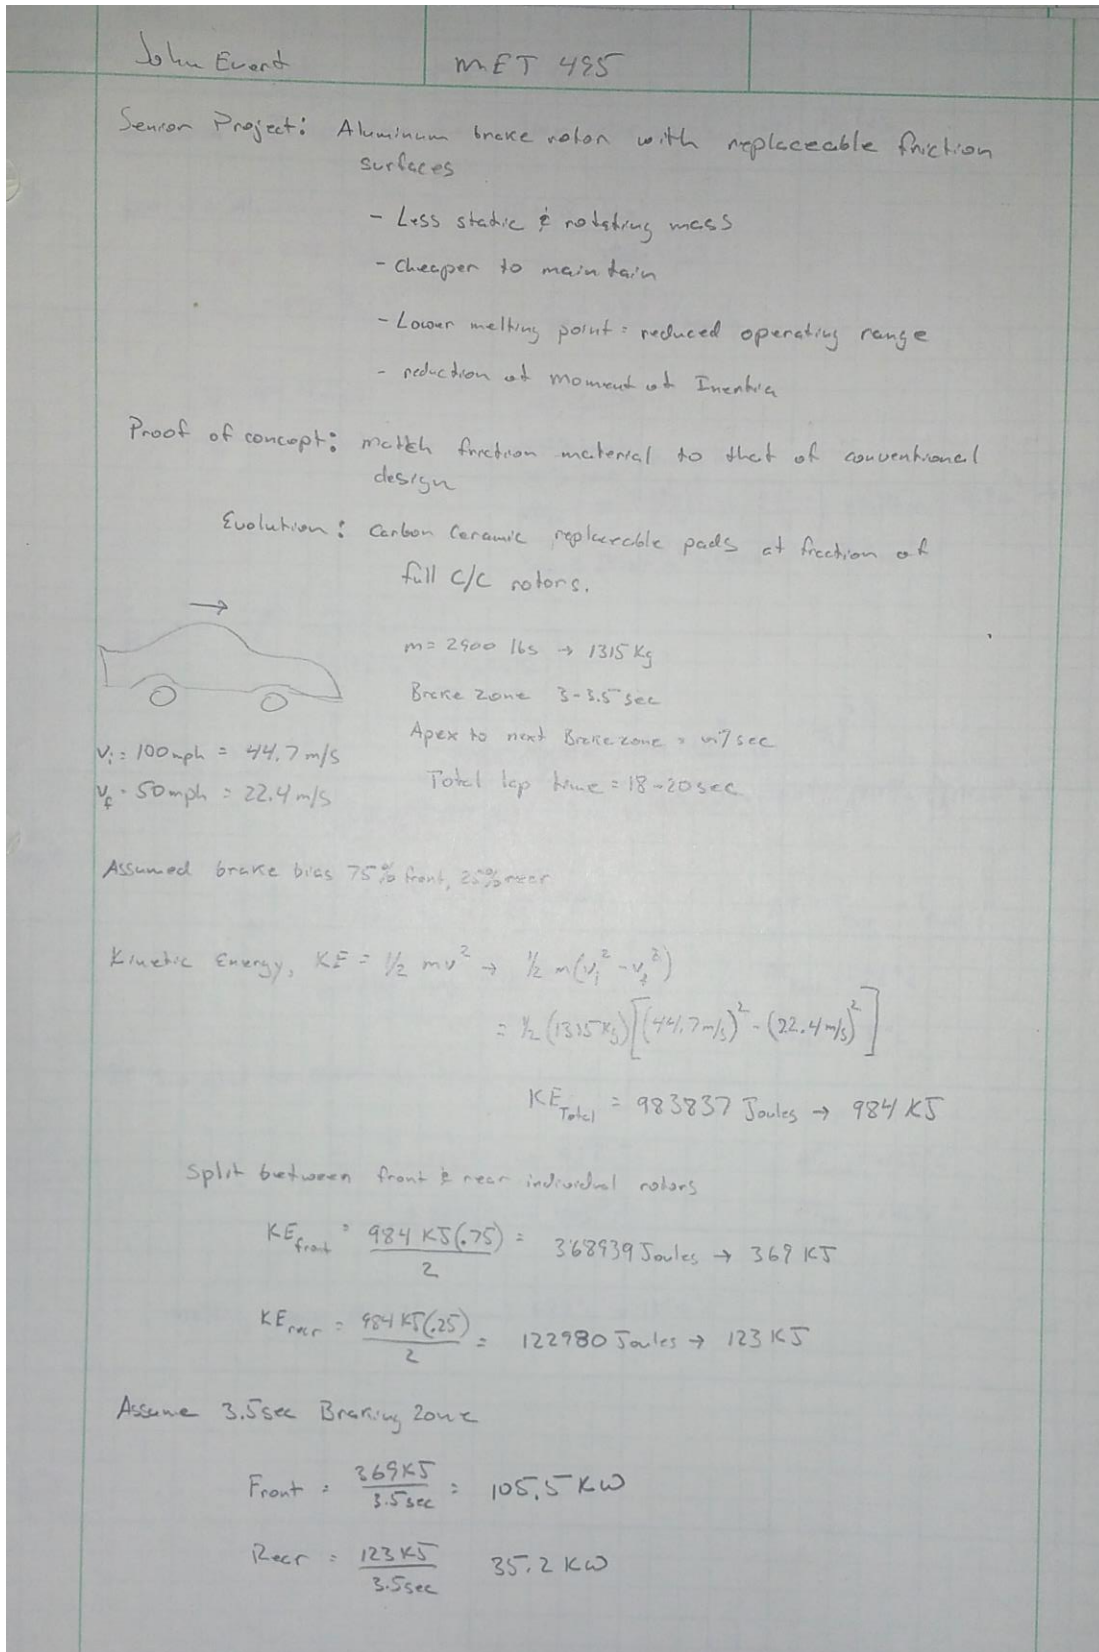 John Evard
MET 495
Senior Project: Aluminum brake rotor with replaceable friction
surfaces
- Less static & rotating mass
- cheaper to maintain
- Lower melting point = reduced operating range
- reduction of Moment of Inertia
Proof of concept: match friction material to that of conventional
design
Evolution: Carbon Ceramic replaceable pads at fraction of
full C/C rotors.
m = 2900 lbs → 1315 Kg
Brake zone 3-3.5 sec
Apex to next Brake zone = ~7 sec
Total lap time = 18-20 sec
Vi = 100 mph = 44.7 m/s
Vf = 50 mph = 22.4 m/s
Assumed brake bias 75% front, 25% rear
Kinetic Energy, KE = 1/2 mv² → 1/2 m(vi² - vf²)
= 1/2 (1315 Kg)[(44.7 m/s)² - (22.4 m/s)²]
KE Total = 983837 Joules → 984 KJ
Split between front & rear individual rotors
KE front = 984 KJ(.75) / 2 = 368939 Joules → 369 KJ
KE rear = 984 KJ(.25) / 2 = 122980 Joules → 123 KJ
Assume 3.5 sec Braking Zone
Front = 369 KJ / 3.5 sec = 105.5 KW
Rear = 123 KJ / 3.5 sec 35.2 KW